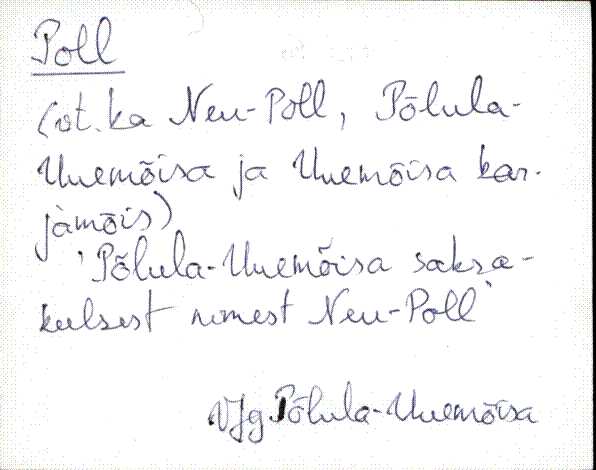 Poll
(vt. ka Neu-Poll, Põlula-
Uuemõisa ja Uuemõisa kar-
jamõis)
'Põlula-Uuemõisa saksa-
keelsest nimest Neu-Poll'
VJg Põlula-Uuemõisa